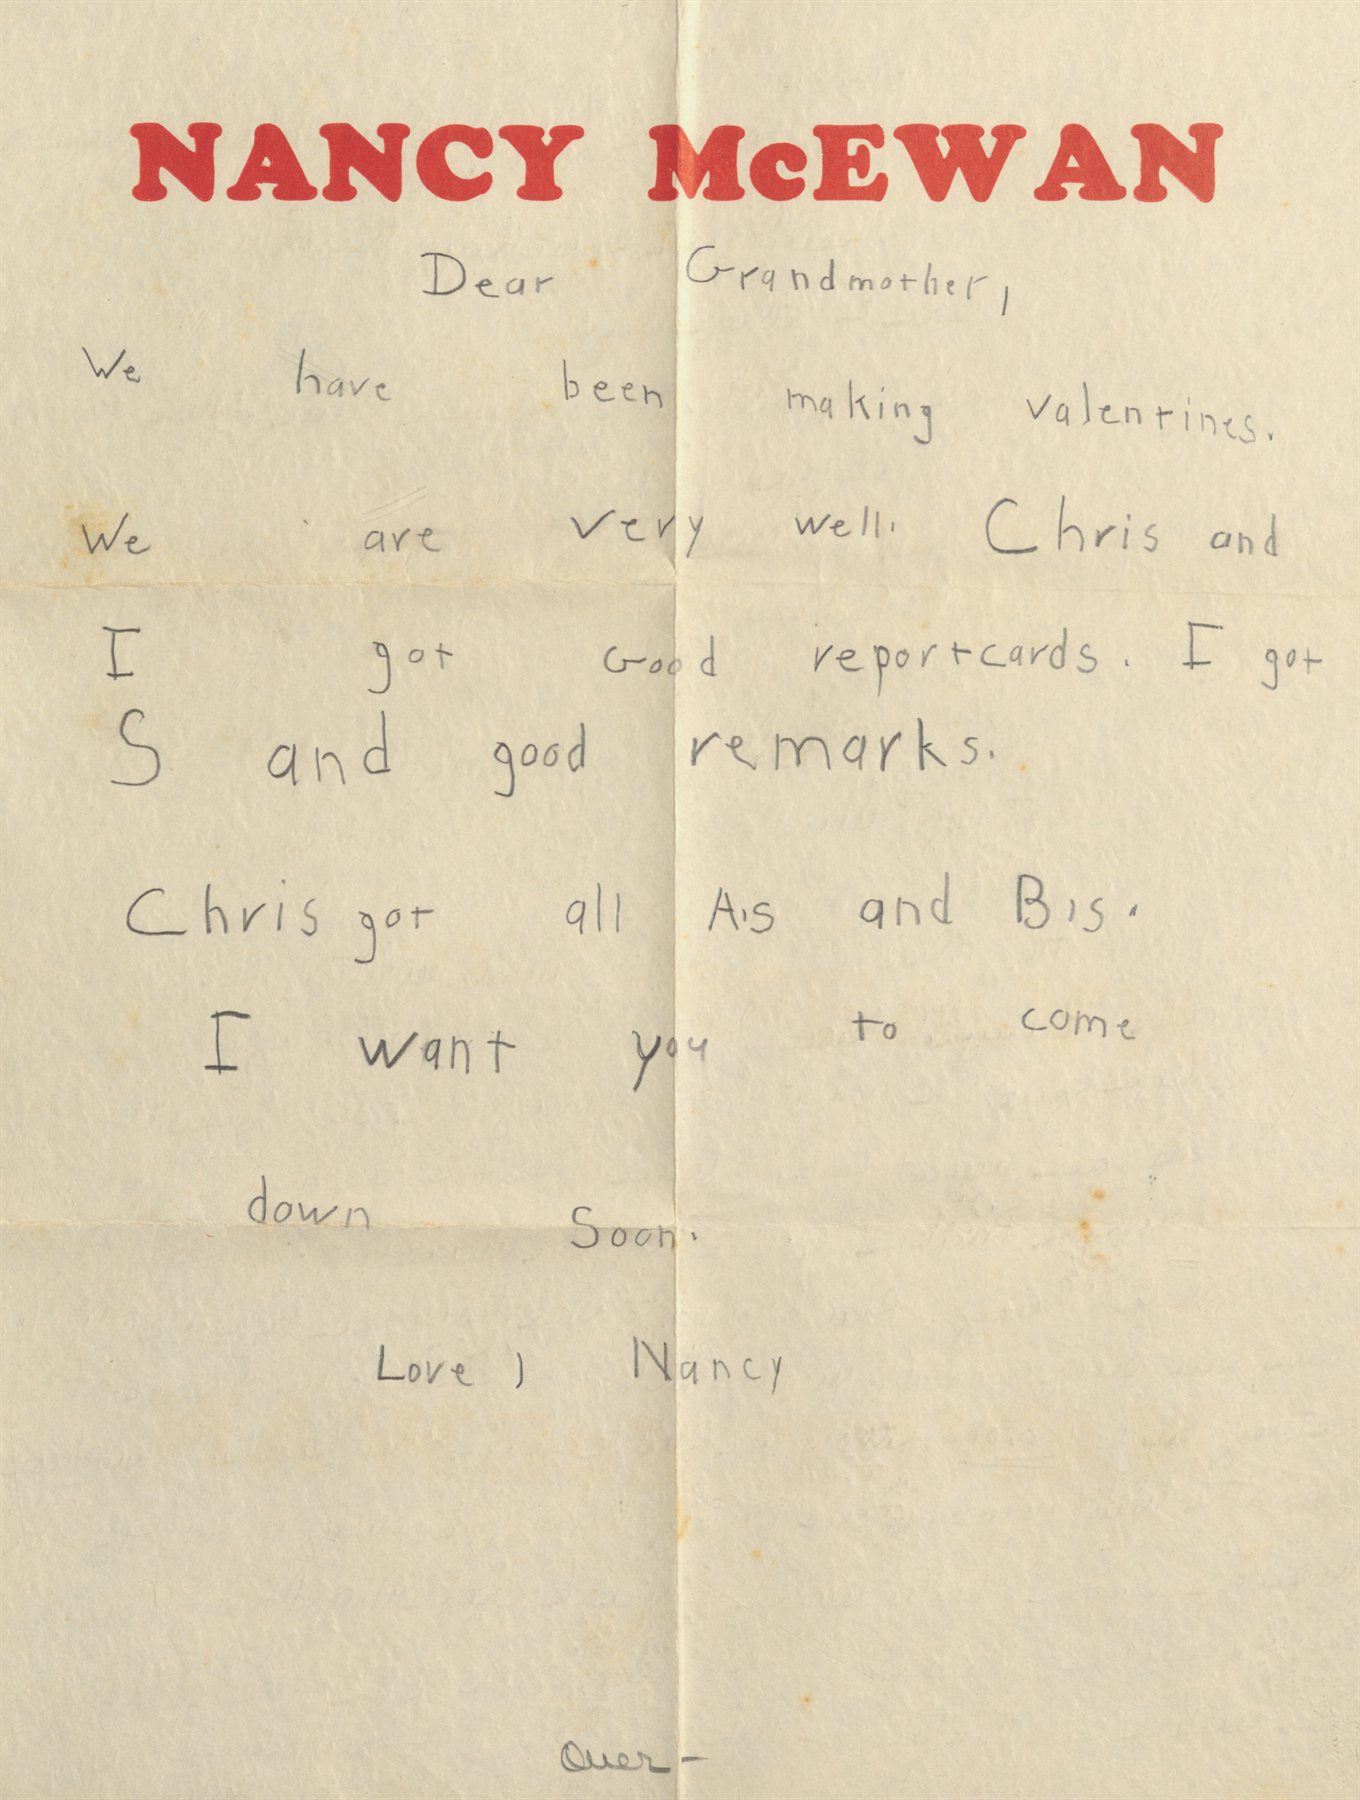 NANCY McEWAN
Dear Grandmother,
We have been making valentines.
We are very well. Chris and
I got Good reportcards. I got
S and good remarks.
Chris got all A's and B's.
I want you to come
down Soon.
Love, Nancy
Over-